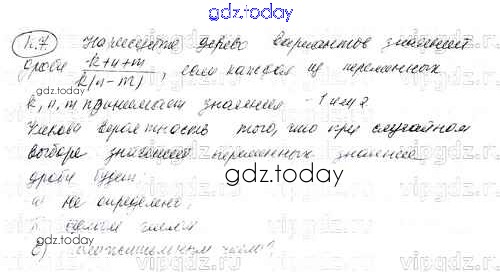 gdz.today
4.7 Нарисуйте дерево вариантов значений
дроби k+n+m / k(n-m), если каждая из переменных
k, n, m принимает значения -1 или 2
Какова вероятность того, что при случайном
выборе значений переменных значение
дроби будет:
gdz.today
не определено;
целым числом
б) положительным числом?
gdz.today